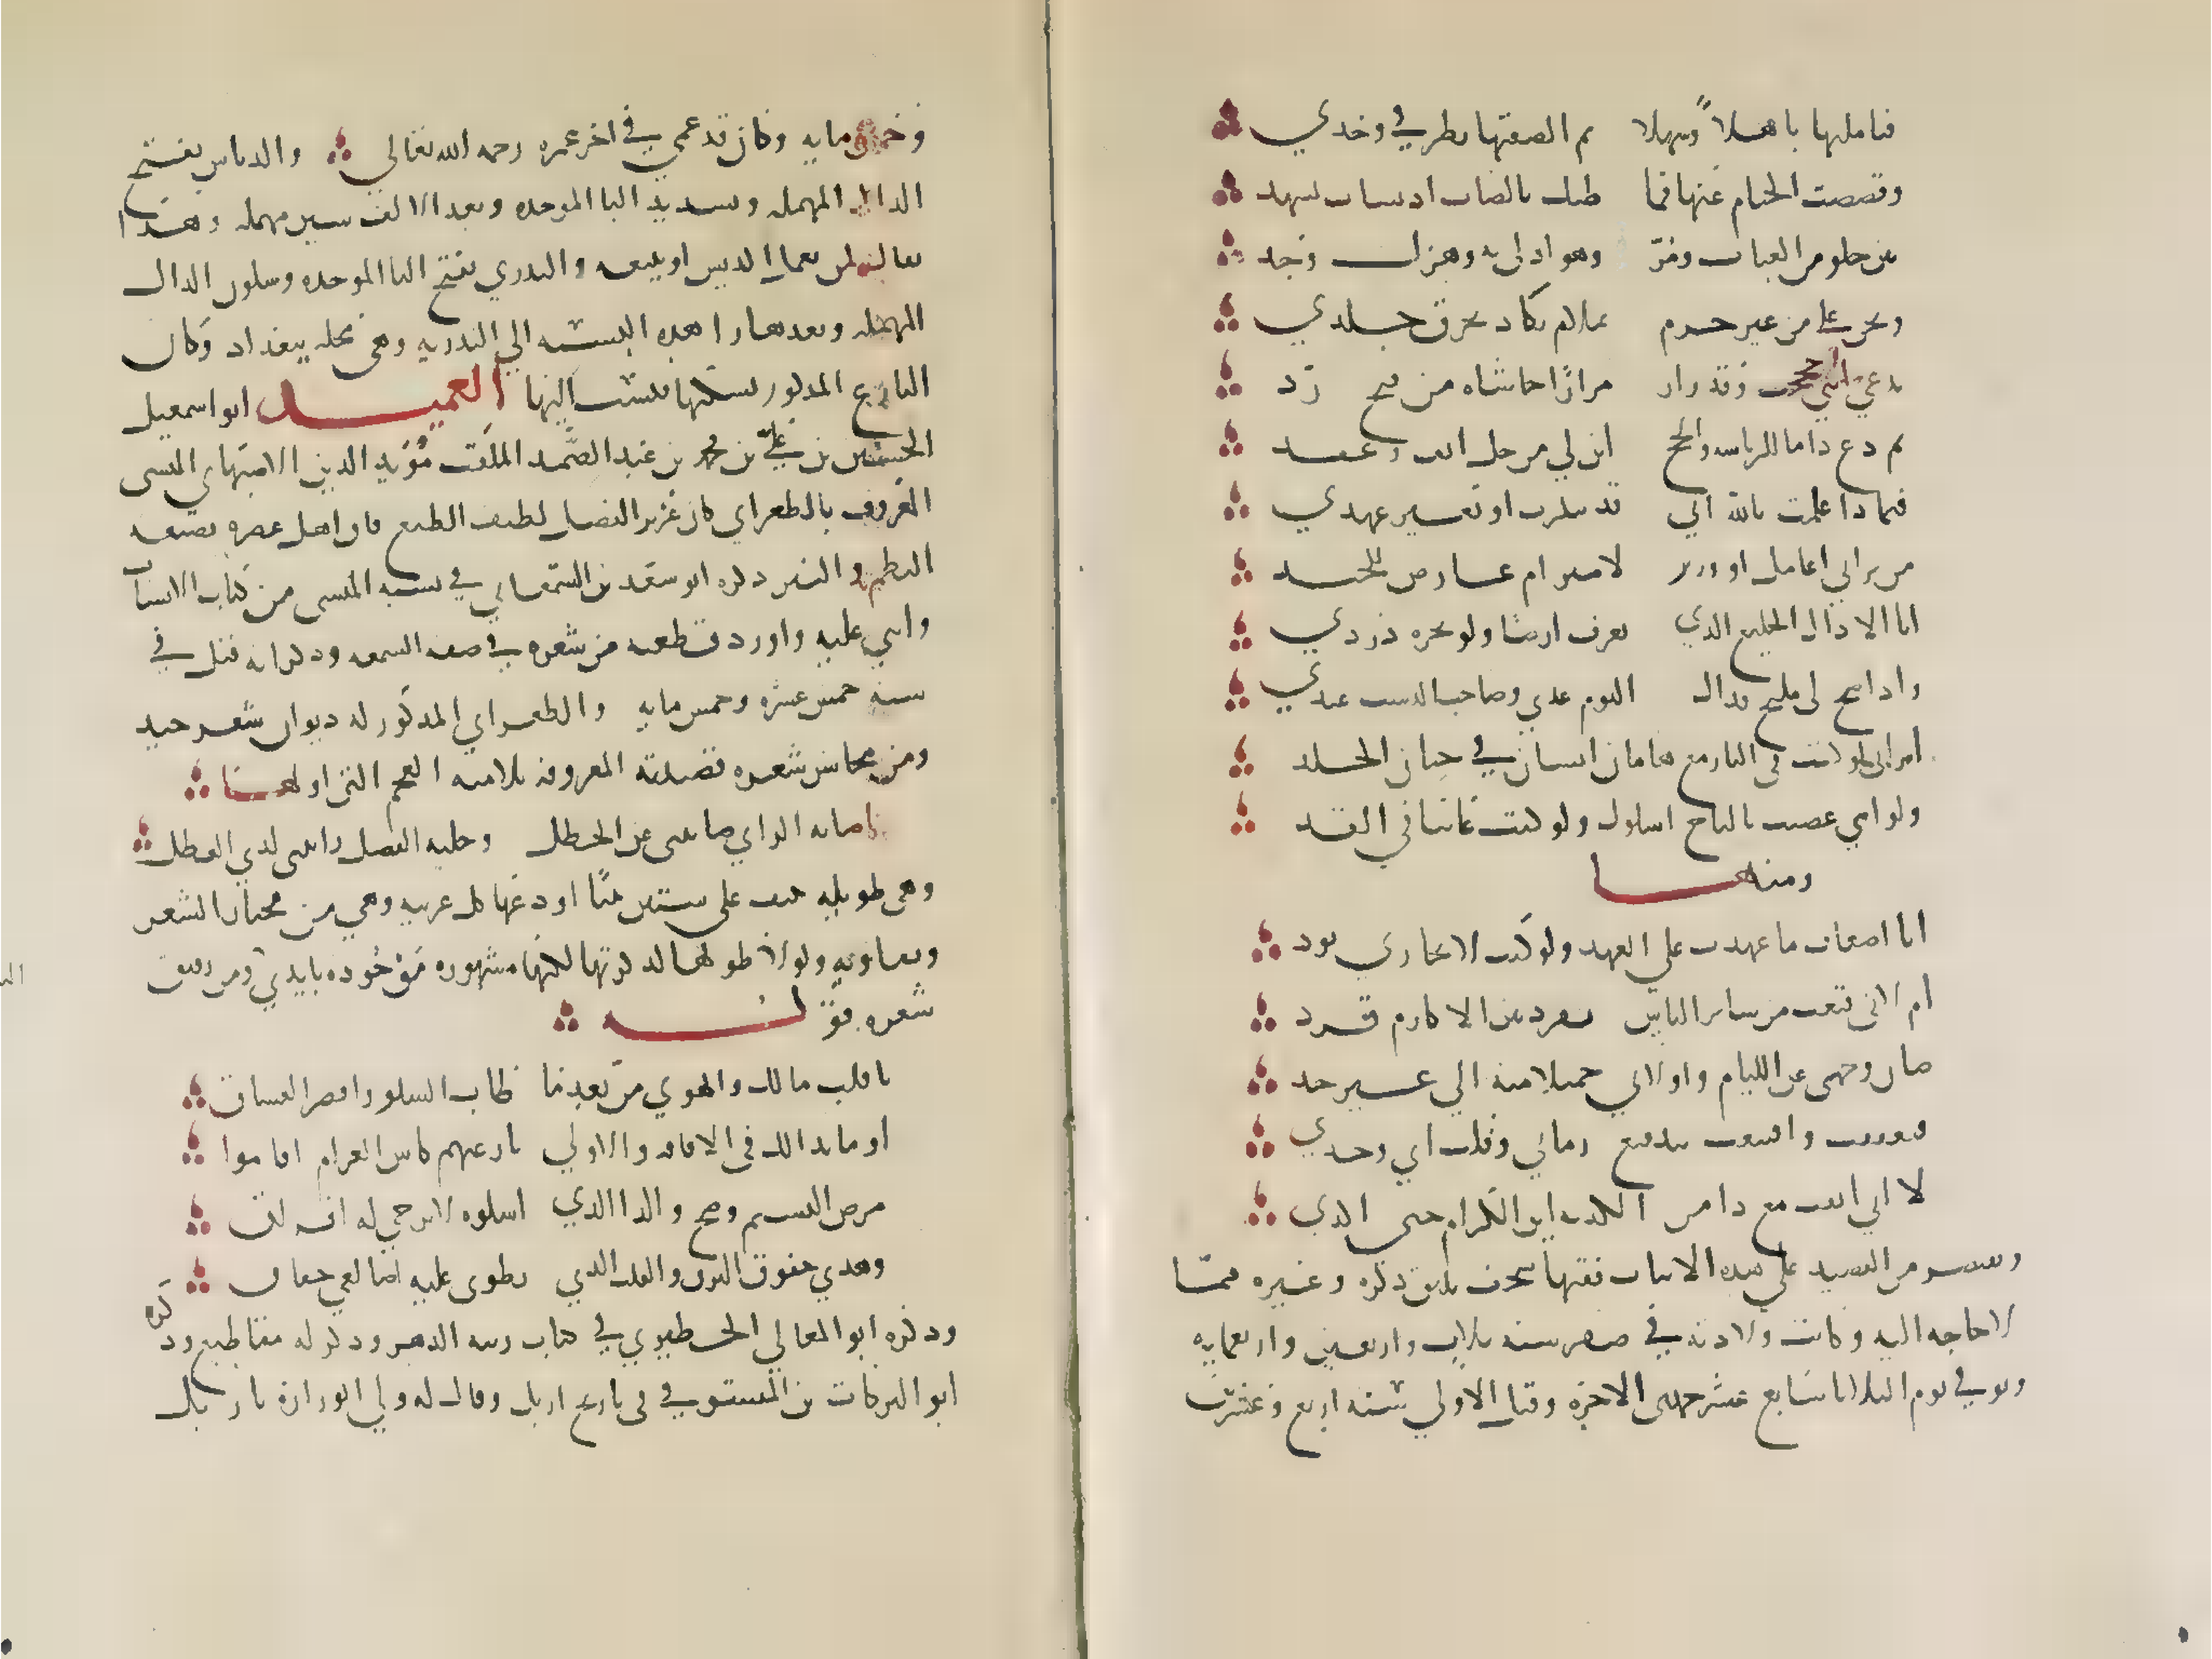 فتاملها باهلاً وسهلا ثم الصقتها بطرفي وخدي
وفضضت الختام عنها فما ظنك بالصاب اذ يشاب بشهد
بين حلو من العتاب ومرّ وهو اولى به وهزل وجد
وتجن علي من غير جرم بملام يكاد يحرق جلدي
يدعي انني حجبت وقد زار مرارًا حاشاه من قبح رد
ثم دع ذا ما للرياسة والحج ابن لي من حل انف وعقد
فبماذا علمت بالله اني قد تنكرت او تغير عهدي
من تراني اعامل او وزير لامير ام عارض للجند
انا الا ذاك الخليع الذي تعرف ارضا ولو بجره دردي
واذا صح لي مليح فذاك اليوم عدي وصاحب الدست عبدي
اتراني لو كنت في النار مع هامان انساني في جنان الخلد
ولو اني عصبت بالتاج اسلوك ولو كنت غانيا في القد
ومنها
انا اضعاف ما عهدت على العهد ولو كنت لا تجازي بود
ام لاني قنعت من ساير الناس بفرد من الاكارم فرد
صان وجهي عن الليام واولاني جميلا منه الي غير حد
فتعففت واقتنعت بتدفيع زماني وقلت اني وحدي
لا لاني انفت مع ذا من الكديه اين الكرام حتى اكدي
ونقتصر من القصيد على هذه الابيات ففيها سخف يليق ذكره وغيره مما
لا حاجه اليه وكانت ولادته في صفر سنه ثلاث واربعين واربعمايه
وتوفي يوم الثلاثا سابع عشر جمدى الاخره وقيل الاولي سنه اربع وعشرين
وخمس مايه وكان قد عمي في اخر عمره رحمه الله تعالي والدباس بفتح
الدال المهمله وتشديد البا الموحده وبعد الالف سين مهمله وهذا
يقال لمن يعمل الدبس او يبيعه والبدري بفتح البا الموحده وسكون الدال
المهمله وبعدها را هذه النسبه الي البدريه وهي محله ببغداد وكان
البارع المذكور يسكنها فنسب اليها العميد ابو اسمعيل
الحسين بن علي بن محمد بن عبد الصمد الملقب مؤيد الدين الاصبهاني المنشي
المعروف بالطغراي كان غزير الفضل لطيف الطبع فاق اهل عصره بصنعه
النظم والنثر ذكره ابو سعد بن السمعاني في نسبه المنشي من كتاب الانساب
واثني عليه واورد قطعه من شعره في صفه الشمعه وذكر انه قتل في
سنه خمس عشره وخمس مايه والطغراي المذكور له ديوان شعر جيد
ومن محاسن شعره قصيدته المعروفه بلاميه العجم التي اولها
اصاله الراي صانتني عن الخطل وحليه الفضل زانتني لدي العطل
وهي طويله تنيف على ستين بيتا اودعها كل غريبه وهي من مختار الشعر
ونعاونه ولولا طولها لذكرتها لكنها مشهوره موجوده بايدي ومن رقيق
شعره قوله
يا قلب مالك والهوي من بعد ما طاب السلو واقصر العشاق
او ما بدا لك في الافاقه والاولي نازعتهم كاس الغرام افاقوا
مرض النسيم وصح والدا الذي اشكوه لا يرجي له افراق
وهدي خفوق البرق والقلب الذي تطوى عليه اضالعي خفاق
وذكره ابو المعالي الحظيري في كتاب زينه الدهر وذكر له مقاطيع وذكره
ابو البركات بن المستوفي في تاريخ اربل وقال له ولي الوزاره باربل